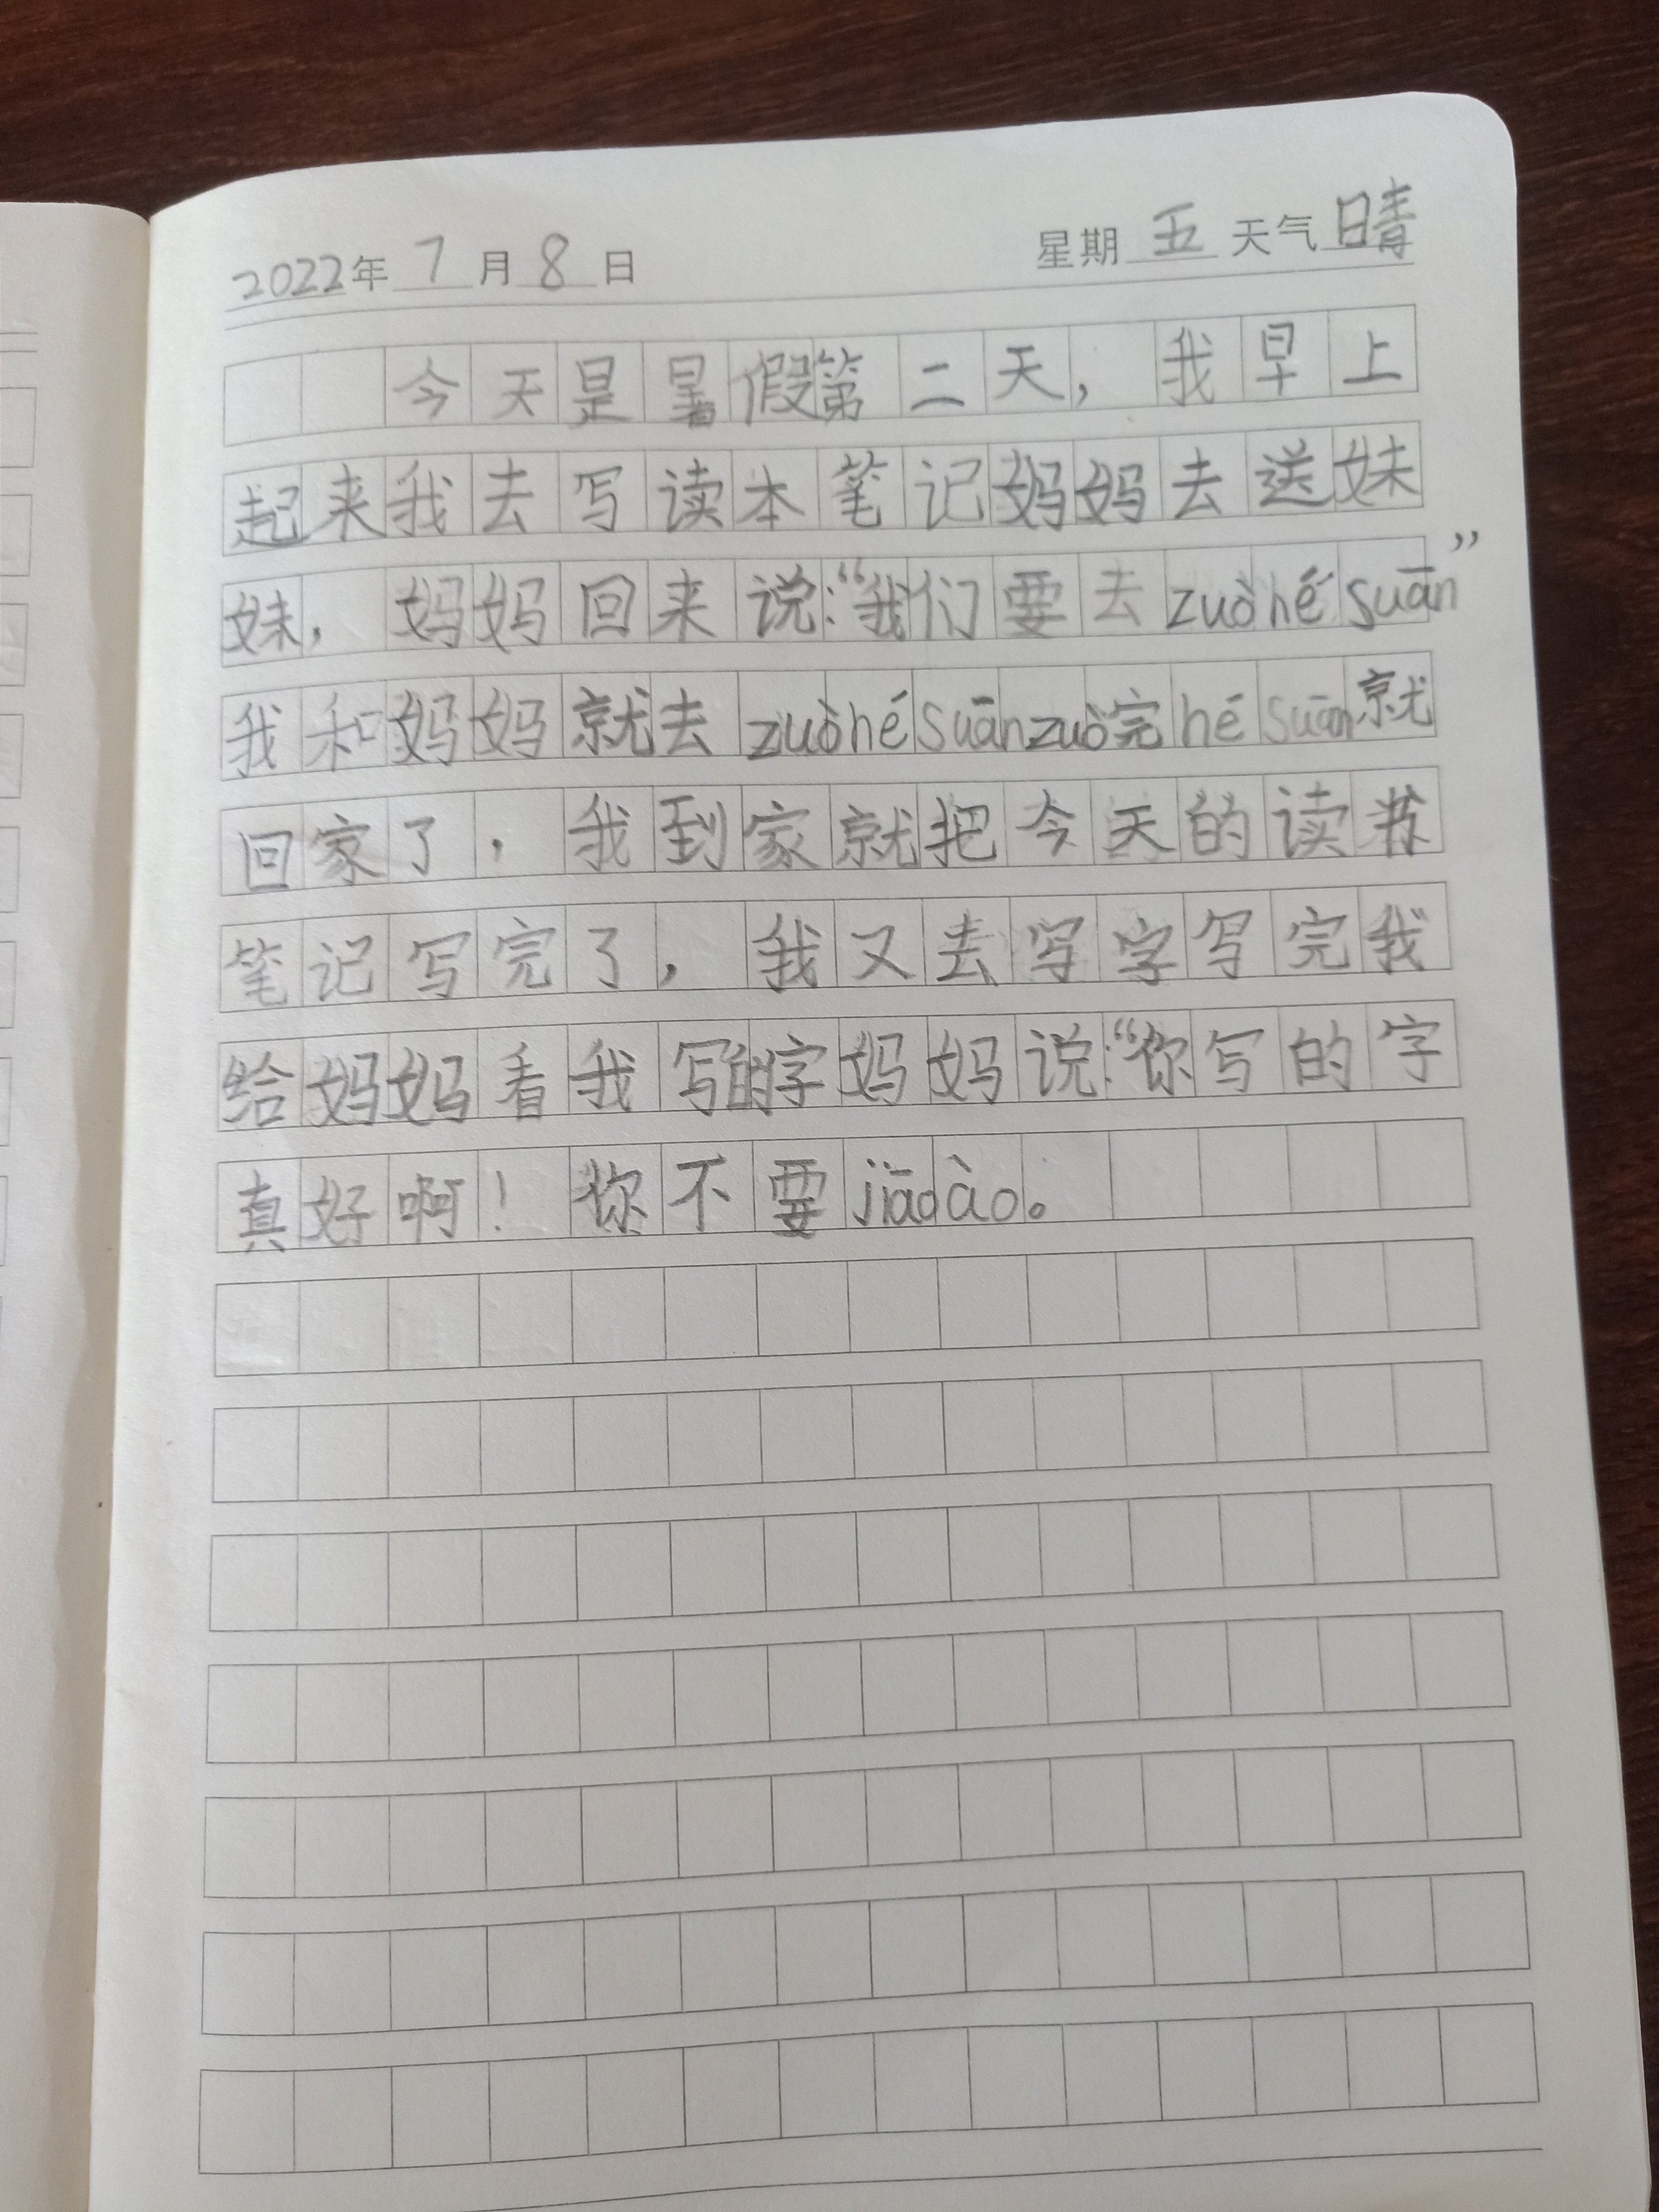 2022年7月8日 星期五天气晴
今天是暑假第二天，我早上
起来我去写读本笔记妈妈去送妹
妹，妈妈回来说：“我们要去zuòhésuān”
我和妈妈就去zuòhésuānzuò完hésuān就
回家了，我到家就把今天的读
笔记写完了，我又去写字写完我
给妈妈看我写的字妈妈说：“你写的字
真好啊！你不要jiāoào。